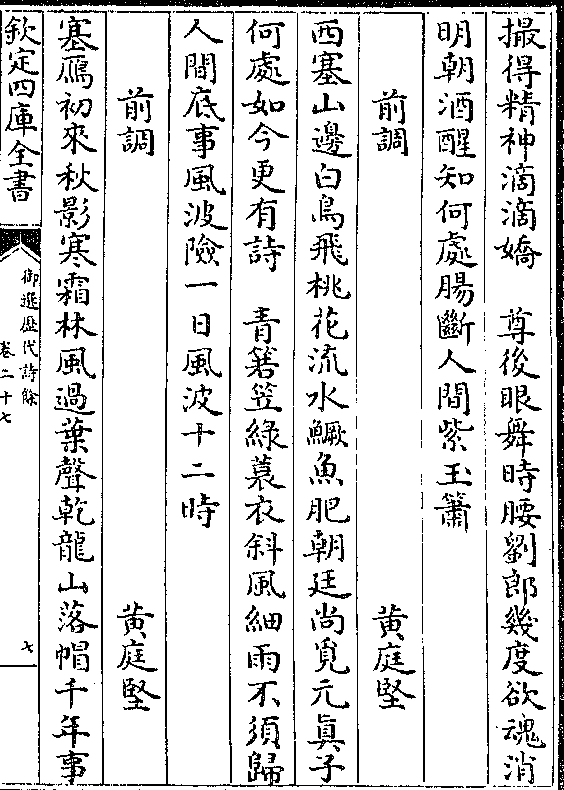 撮得精神滴滴嬌　尊後眼舞時腰劉郎幾度欲魂消
明朝酒醒知何處腸斷人間紫玉簫
前調　黄庭堅
西塞山邊白鳥飛桃花流水鱖魚肥朝廷尚覓元真子
何處如今更有詩　青箬笠綠蓑衣斜風細雨不須歸
人間底事風波險一日風波十二時
前調　黄庭堅
塞鴈初來秋影寒霜林風過葉聲乾龍山落帽千年事
欽定四庫全書
御選歷代詩餘
卷二十七
七